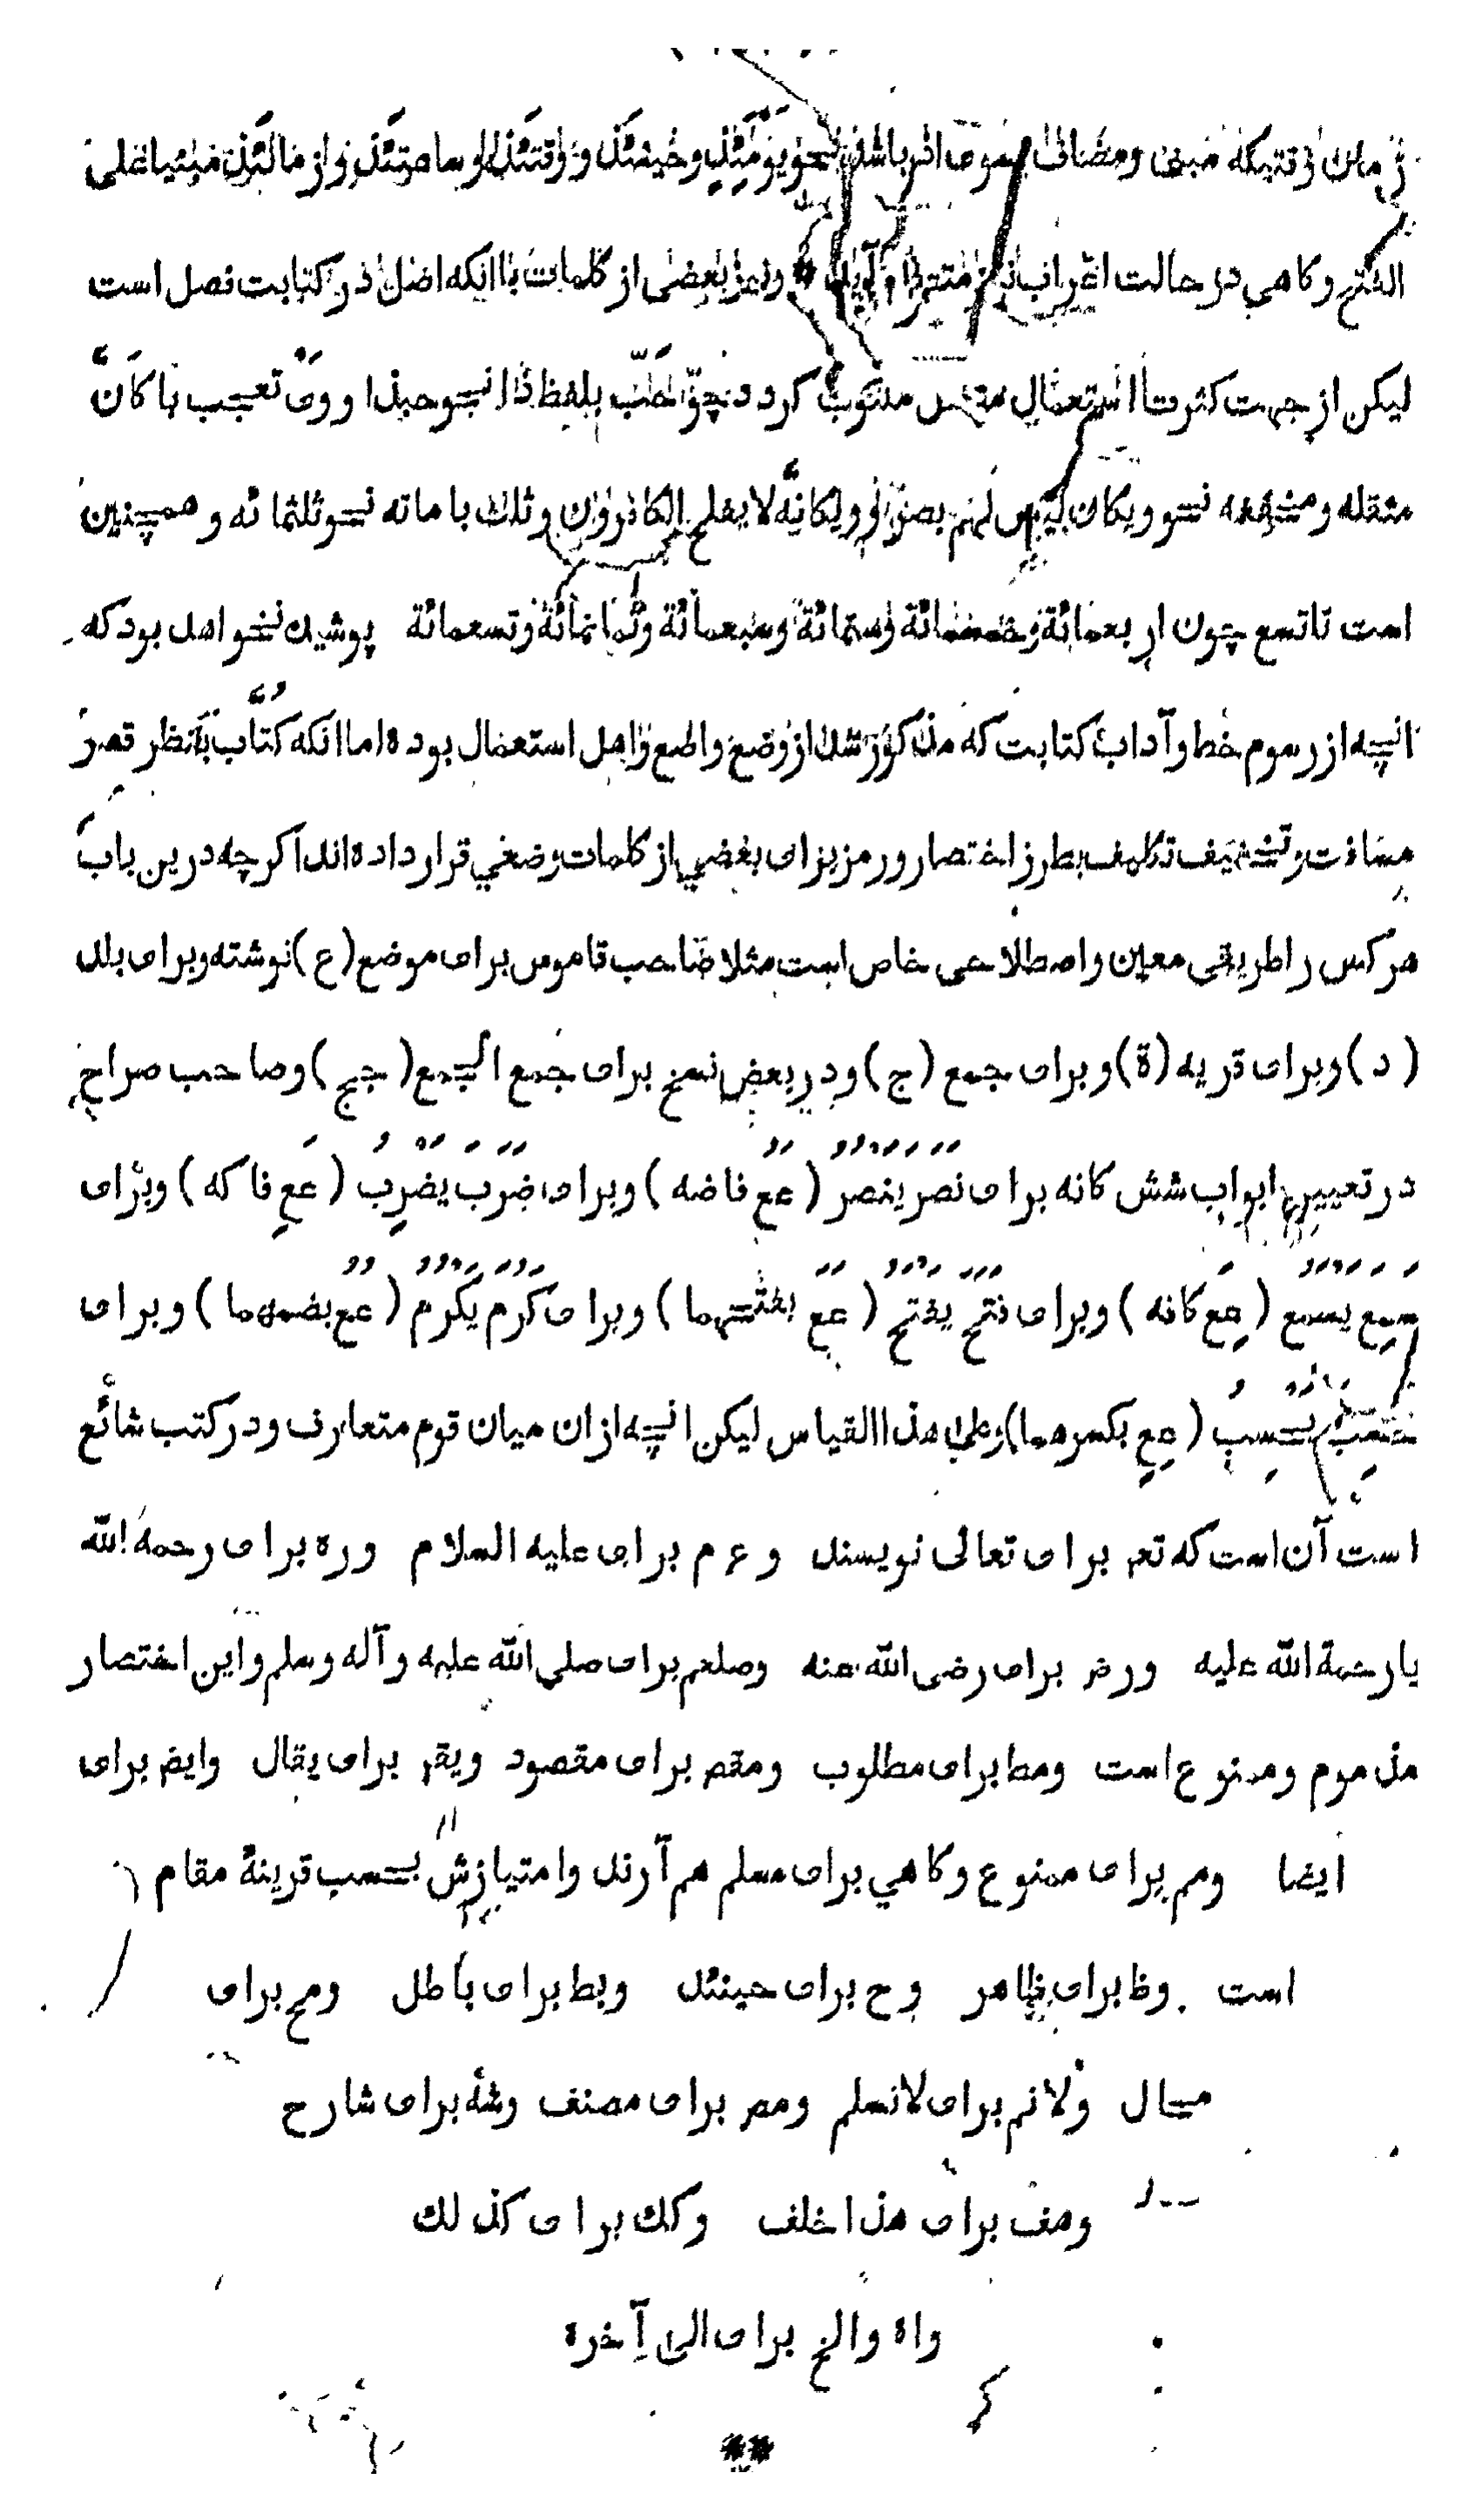 زمان وقتیکه مبنی ومضاف بسوی اذ باشد نحو یومئذٍ وحینئذ ووقتئذ وساعتئذ واز مالئذن مبنیا علی
الفتح وکاهي در حالت اعراب نیز وبعضی از کلمات باانکه اصل در کتابت فصل است
لیکن از جهت کثرت استعمال متصل مکتوب کردد نحو حبّ بلفظ ذا نحو حبذا ووی تعجب با کَانَّ
مثقله ومخففه نحو ویکان لیس لهم بصیر وویکانه لا یفلح الکافرون وثلث با مائه نحو ثلثمائه وهمچنین
است تاتسع چون اربعمائة وخمسمائة وستمائة وسبعمائة وثمانمائة وتسعمائة پوشیده نخواهد بود که
انچه از رسوم خط وآداب کتابت که مذکور شد از وضع واضع واهل استعمال بوده اما انکه کُتّاب بنظر قصر
مسافت وتخفیف تکلیف بطرز اختصار ورمز برای بعضي از کلمات وضعي قرار داده اند اکرچه درین باب
هر کس را طریقی معین واصطلاحی خاص است مثلا صاحب قاموس برای موضع (ع) نوشته وبرای بلد
(د) وبرای قریه (ة) وبرای جمع (ج) ودر بعض نسخ برای جمع الجمع (جج) وصاحب صراح
در تعبیر ابواب شش کانه برای نصر ینصر (عع فاضه) وبرای ضَرَبَ یَضْرِبُ (عَعِ فاکه) وبرای
سمِع یسمع (عِعَ کانه) وبرای فتح یفتح (عَعَ بفتحهما) وبرای کَرُم یَکرُم (عُعُ بضمهما) وبرای
حسِب یحسِبُ (عِعِ بکسرهما) وعلی هذا القیاس لیکن انچه از ان میان قوم متعارف ودر کتب شائع
است آن است که تعـ برای تعالی نویسند وع م برای علیه السلام وره برای رحمه الله
یا رحمة الله علیه ورضـ برای رضی الله عنه وصلعم برای صلي الله علیه وآله وسلم واین اختصار
مذموم وممنوع است ومط برای مطلوب ومقصـ برای مقصود ویقـ برای یقال وایضـ برای
ایضا ومم برای ممنوع وکاهي برای مسلم هم آرند وامتیازش بحسب قرینهٔ مقام
است وظ برای ظاهر وح برای حینئذ وبط برای باطل ومح برای
محال ولانم برای لانسلم ومصـ برای مصنف وشهٔ برای شارح
وهف برای هذا خلف وکك برای کذلك
واه والخ برای الی آخره